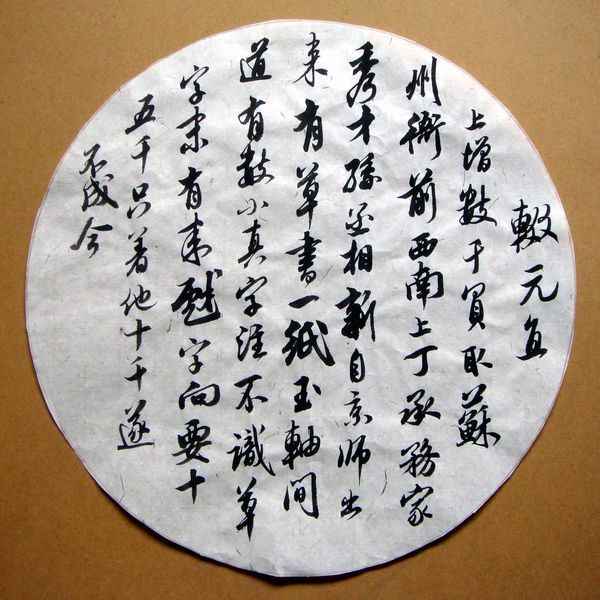 敷元直
上增數千買取蘇
州衙前西南上丁承務家
秀才孫丞相新自京師出
來有草書一紙玉軸間
道有數小真字注不識草
字末有來戲字向要十
五千只着他十千遂
不成今